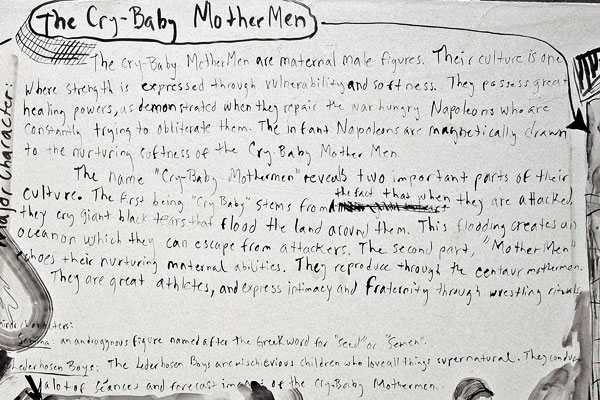 The Cry-Baby MotherMen
The Cry-Baby MotherMen are maternal male figures. Their culture is one
where strength is expressed through vulnerability and softness. They possess great
healing powers, as demonstrated when they repair the war hungry Napoleons who are
constantly trying to obliterate them. The infant Napoleons are magnetically drawn
to the nurturing softness of the Cry-Baby Mother Men.
The name "Cry-Baby Mothermen" reveals two important parts of their
culture. The first being "Cry Baby" stems from the fact that when they are attacked,
they cry giant black tears that flood the land around them. This flooding creates an
ocean on which they can escape from attackers. The second part, "MotherMen"
echoes their nurturing maternal abilities. They reproduce through the centaur motherman.
They are great athletes, and express intimacy and fraternity through wrestling rituals.
Major Character:
minor characters:
Semma: an androgynous figure named after the Greek word for "seed" or "semen".
Lederhosen Boys: The Lederhosen Boys are mischievious children who love all things supernatural. They conduct
alot of séances and forecast images of the Cry-Baby Mothermen.